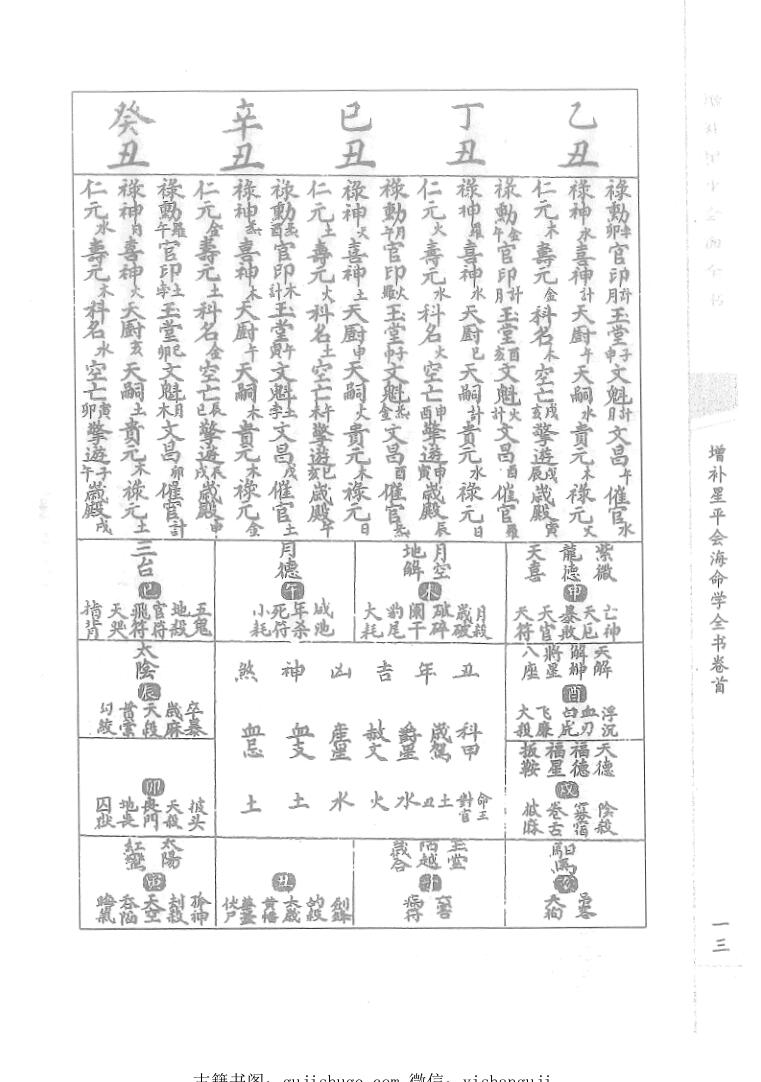 乙丑
丁丑
己丑
辛丑
癸丑
祿動卯孛官印月計玉堂申子文魁日計文昌午催官水
祿神水喜神計天廚午天嗣水貴元木祿元火
仁元木壽元金科名木空亡亥戌擎遊辰戌歲殿寅
祿動午金官印月計玉堂亥酉文魁計火文昌酉催官羅
祿神羅喜神水天廚巳天嗣計貴元水祿元日
仁元火壽元水科名火空亡酉申擎遊寅申歲殿辰
祿動午月官印羅火玉堂申子文魁金炁文昌酉催官炁
祿神火喜神土天廚申天嗣火貴元木祿元日
仁元土壽元火科名土空亡未午擎遊亥巳歲殿午
祿動酉炁官印計木玉堂寅午文魁孛土文昌戌催官土
祿神炁喜神木天廚午天嗣木貴元木祿元金
仁元金壽元土科名金空亡巳辰擎遊戌辰歲殿申
祿動午羅官印孛土玉堂卯巳文魁木月文昌卯催官計
祿神月喜神火天廚亥天嗣土貴元木祿元土
仁元水壽元木科名水空亡卯寅擎遊午子歲殿戌
紫微 龍德 天喜
申
亡神 天厄 暴敗 天官符
月空 地解
未
月殺 歲破 破碎 闌干 豹尾 大耗
月德
午
咸池 年杀 死符 小耗
三台
巳
五鬼 地殺 官符 飛符 天哭 指背
天解 解神 將星 八座
酉
浮沉 血刃 白虎 飞廉 大殺
天德 福德 福星 扳鞍
戌
陰殺 寡宿 卷舌 披麻
馹馬
亥
吊客 天狗
玉堂 陌越 歲合
子
病符
丑
劍鋒 的殺 太歲 黃幡 華蓋 伏尸
太陽 紅鸞
寅
孤神 刦殺 天空 吞陷 晦氣
卯
披头 天殺 喪門 地喪 囚獄
太陰
辰
卒暴 歲麻 天殺 貫索 勾絞
丑年吉凶神煞
科甲 歲駕 爵星 赦文 產星 血支 血忌
命主對官 土丑 水 火 水 土 土
增补星平会海命学全书卷首
一三
古籍书阁：gujishuge.com 微信：yishanguji